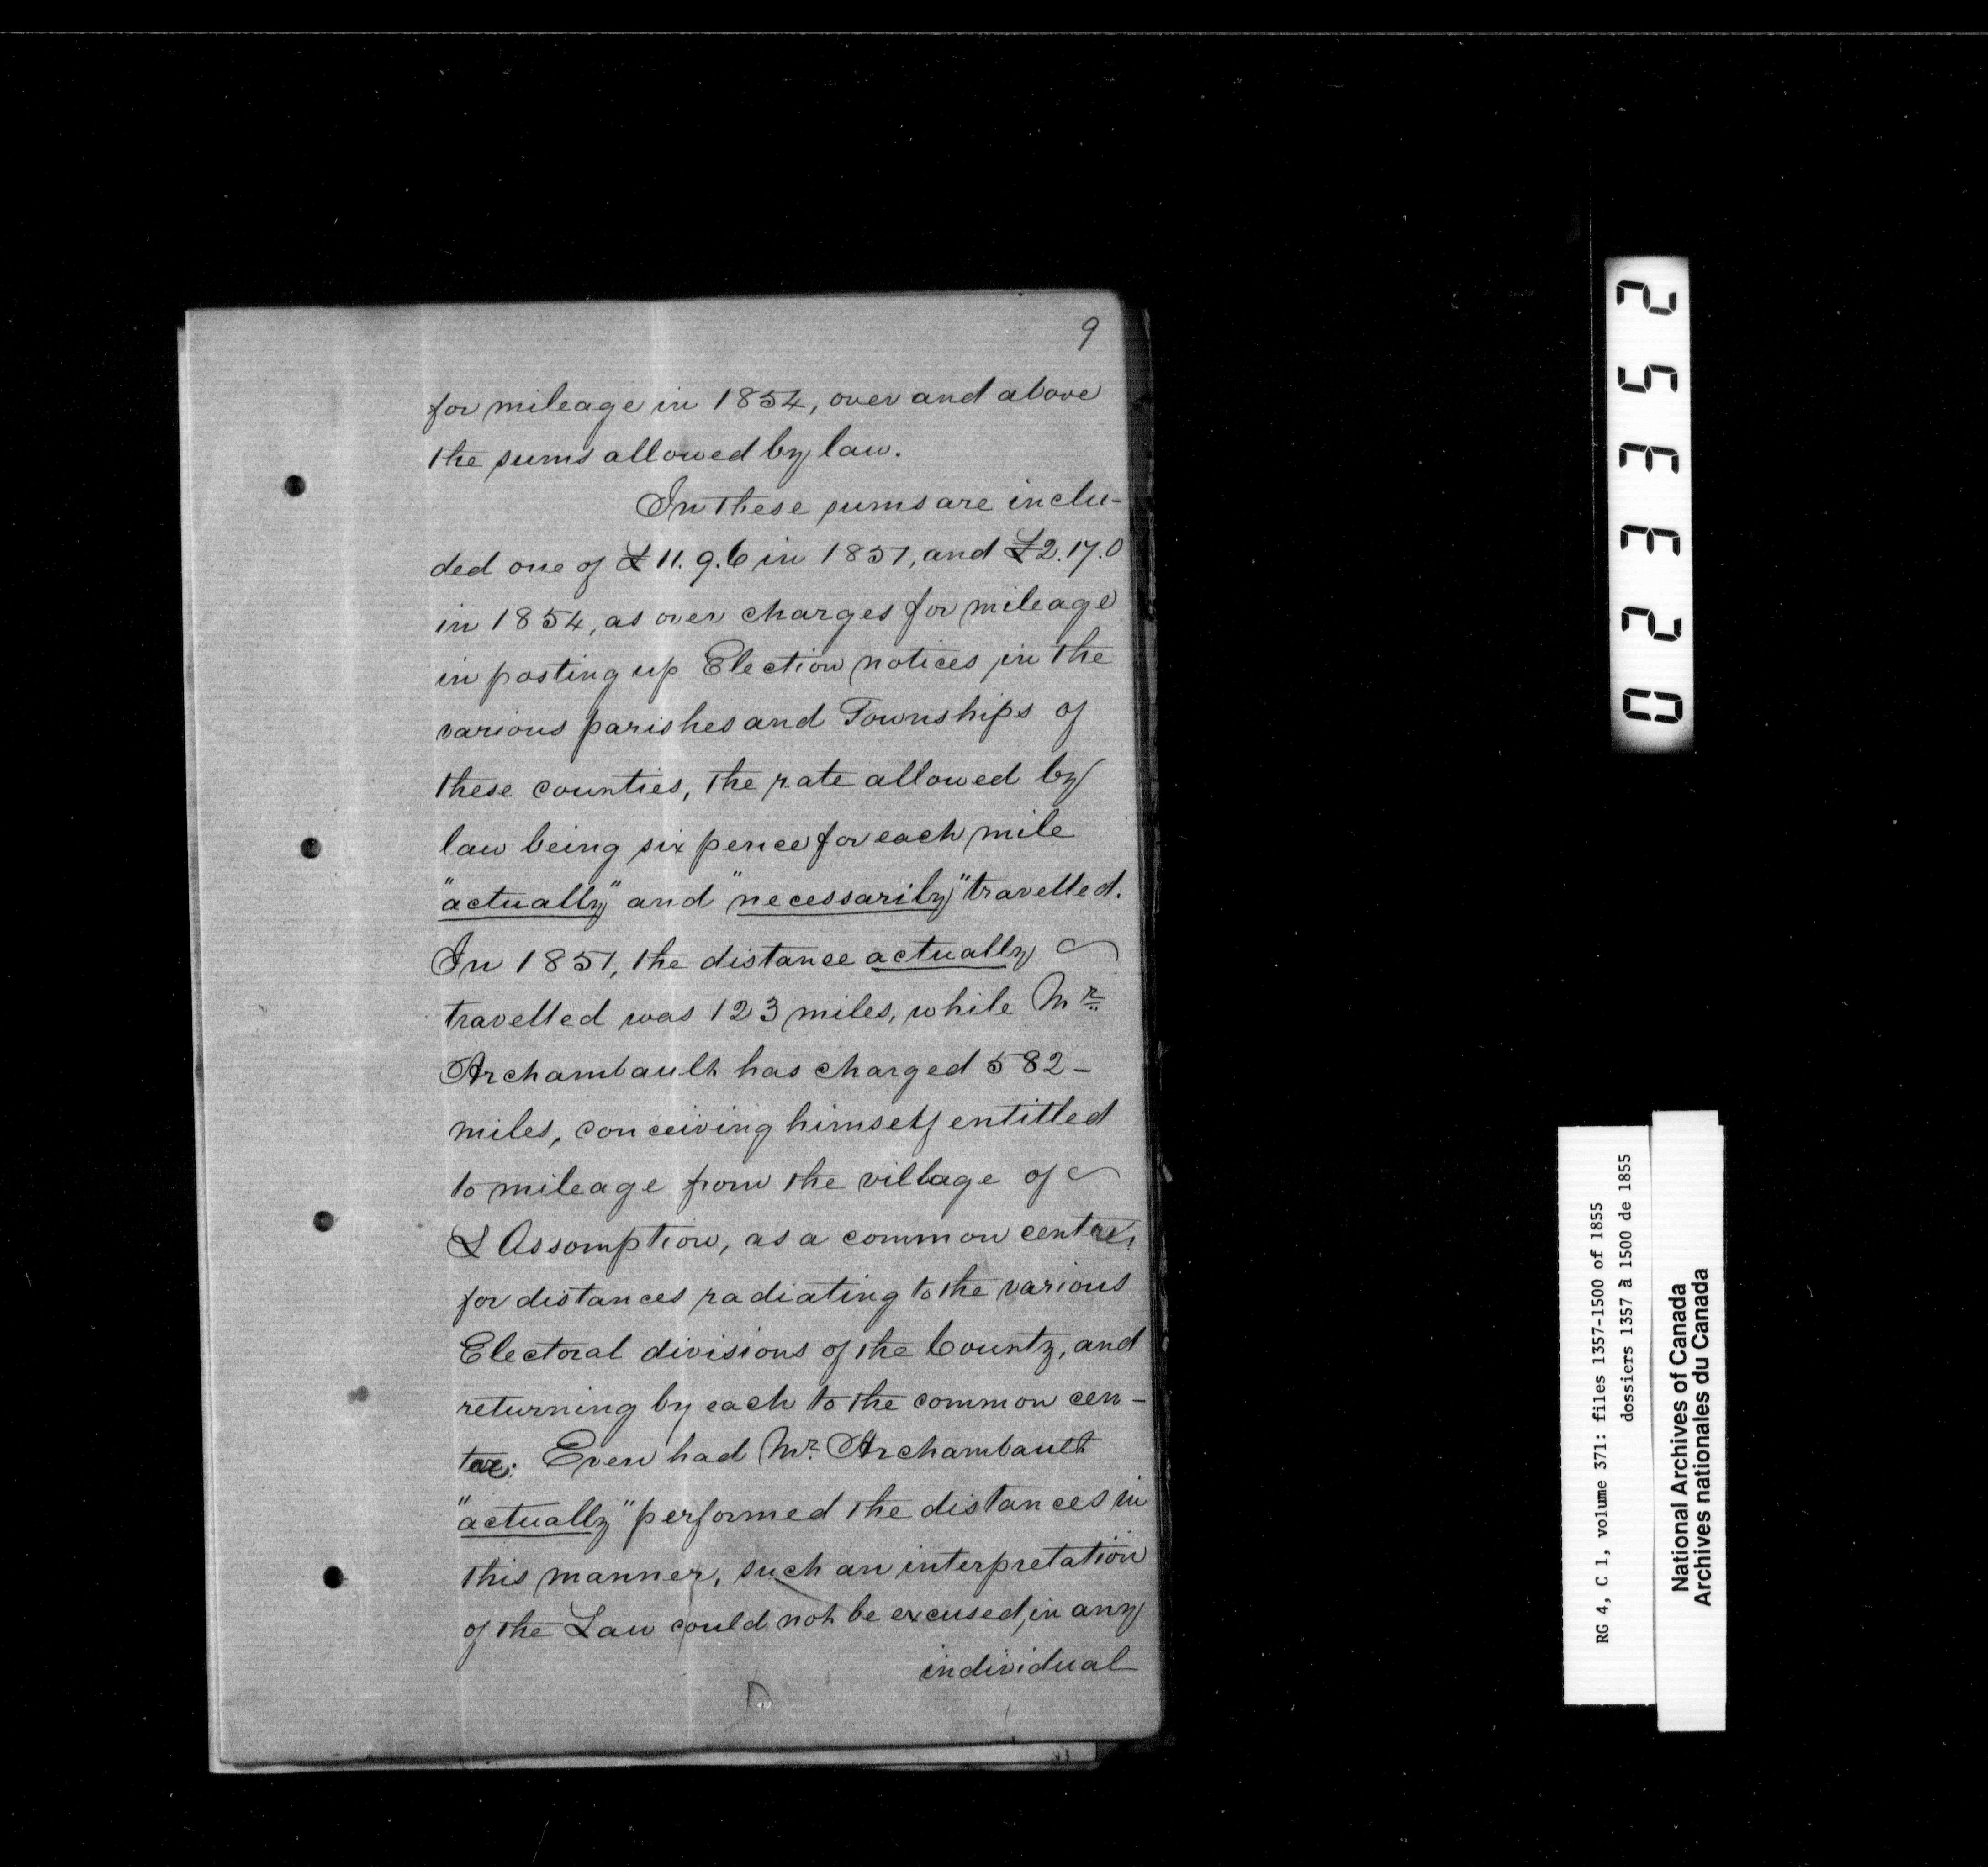 9
for mileage in 1854, over and above
the sums allowed by law.
In these sums are inclu-
ded one of £11.9.6 in 1851, and £2.17.0
in 1854, as over charges for mileage
in posting up Election notices in the
various parishes and Townships of
these counties, the rate allowed by
law being six pence for each mile
"actually" and "necessarily" travelled.
In 1851, the distance actually
travelled was 123 miles, while Mr.
Archambault has charged 582-
miles, conceiving himself entitled
to mileage from the village of
L Assomption, as a common centre,
for distances radiating to the various
Electoral divisions of the County, and
returning by each to the common cen-
tre. Even had Mr. Archambault
"actually" performed the distances in
this manner, such an interpretation
of the Law could not be excused, in any
individual
023352
RG 4, C 1, volume 371: files 1357-1500 of 1855
dossiers 1357 à 1500 de 1855
National Archives of Canada
Archives nationales du Canada